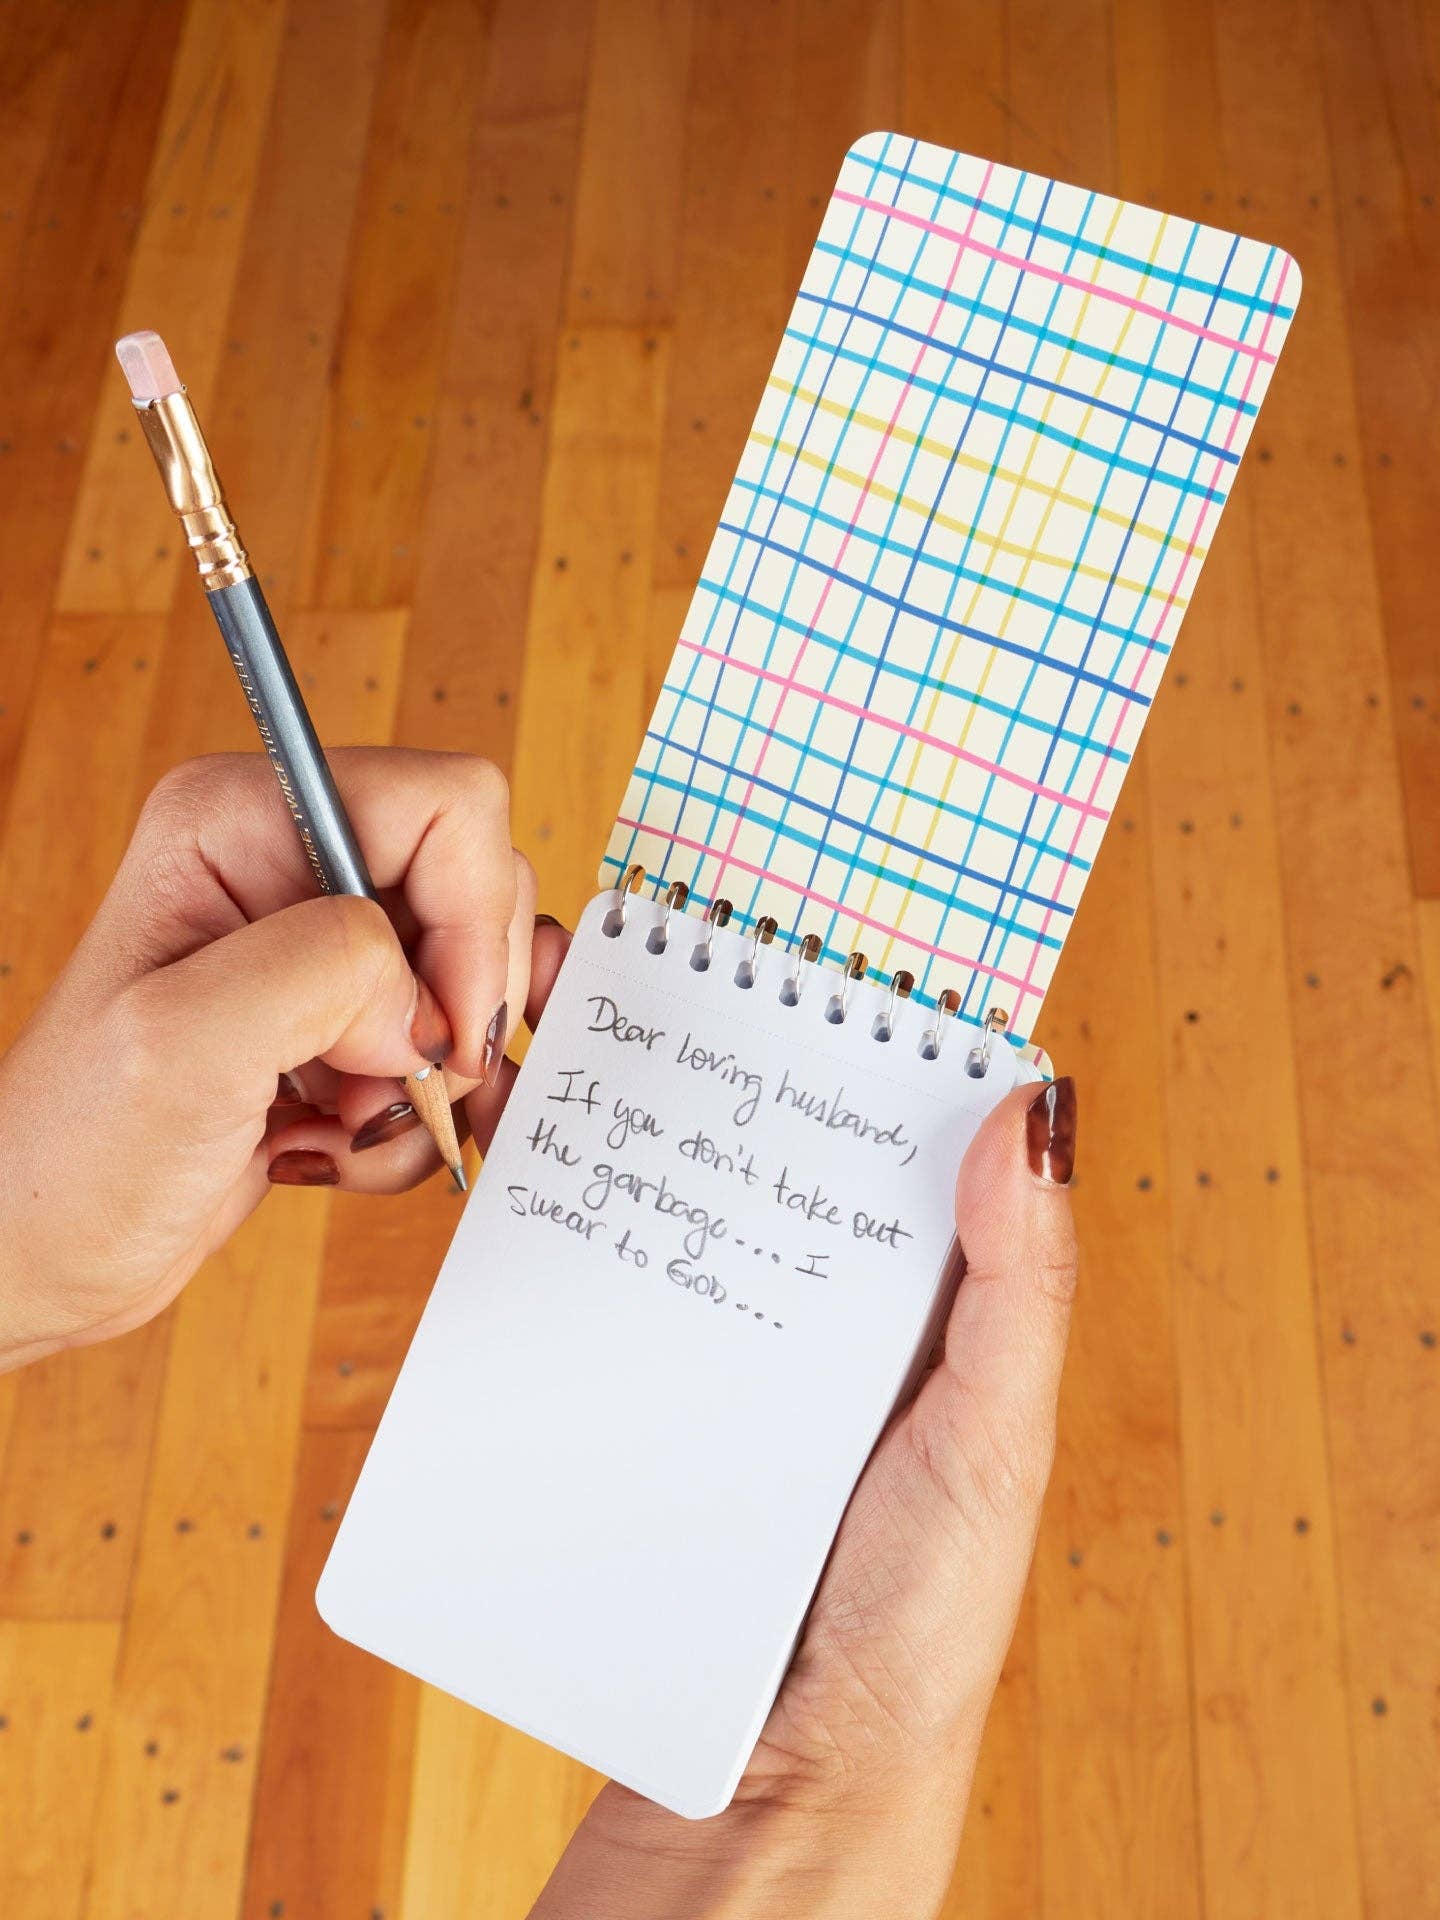 Dear loving husband,
If you don't take out
the garbage... I
swear to GOD...
HALF THE PRESSURE, TWICE THE SPEED